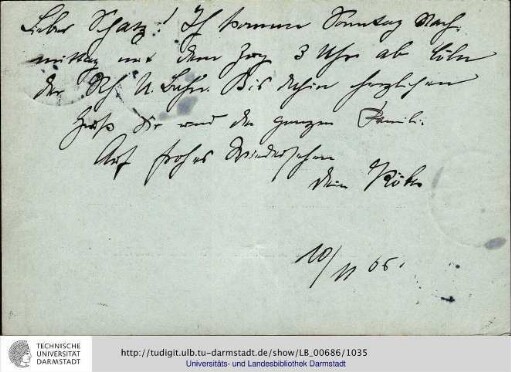 Lieber Schatz! Ich komme Sonntag Nach-
mittag mit dem Zug 3 Uhr ab Cöln
der Bahn. Bis dahin herzlichen
Gruß Dir und der ganzen Famili.
Auf frohes Wiedersehen
dein
10/11 05.
TECHNISCHE
UNIVERSITÄT
DARMSTADT
http://tudigit.ulb.tu-darmstadt.de/show/LB_00686/1035
Universitäts- und Landesbibliothek Darmstadt